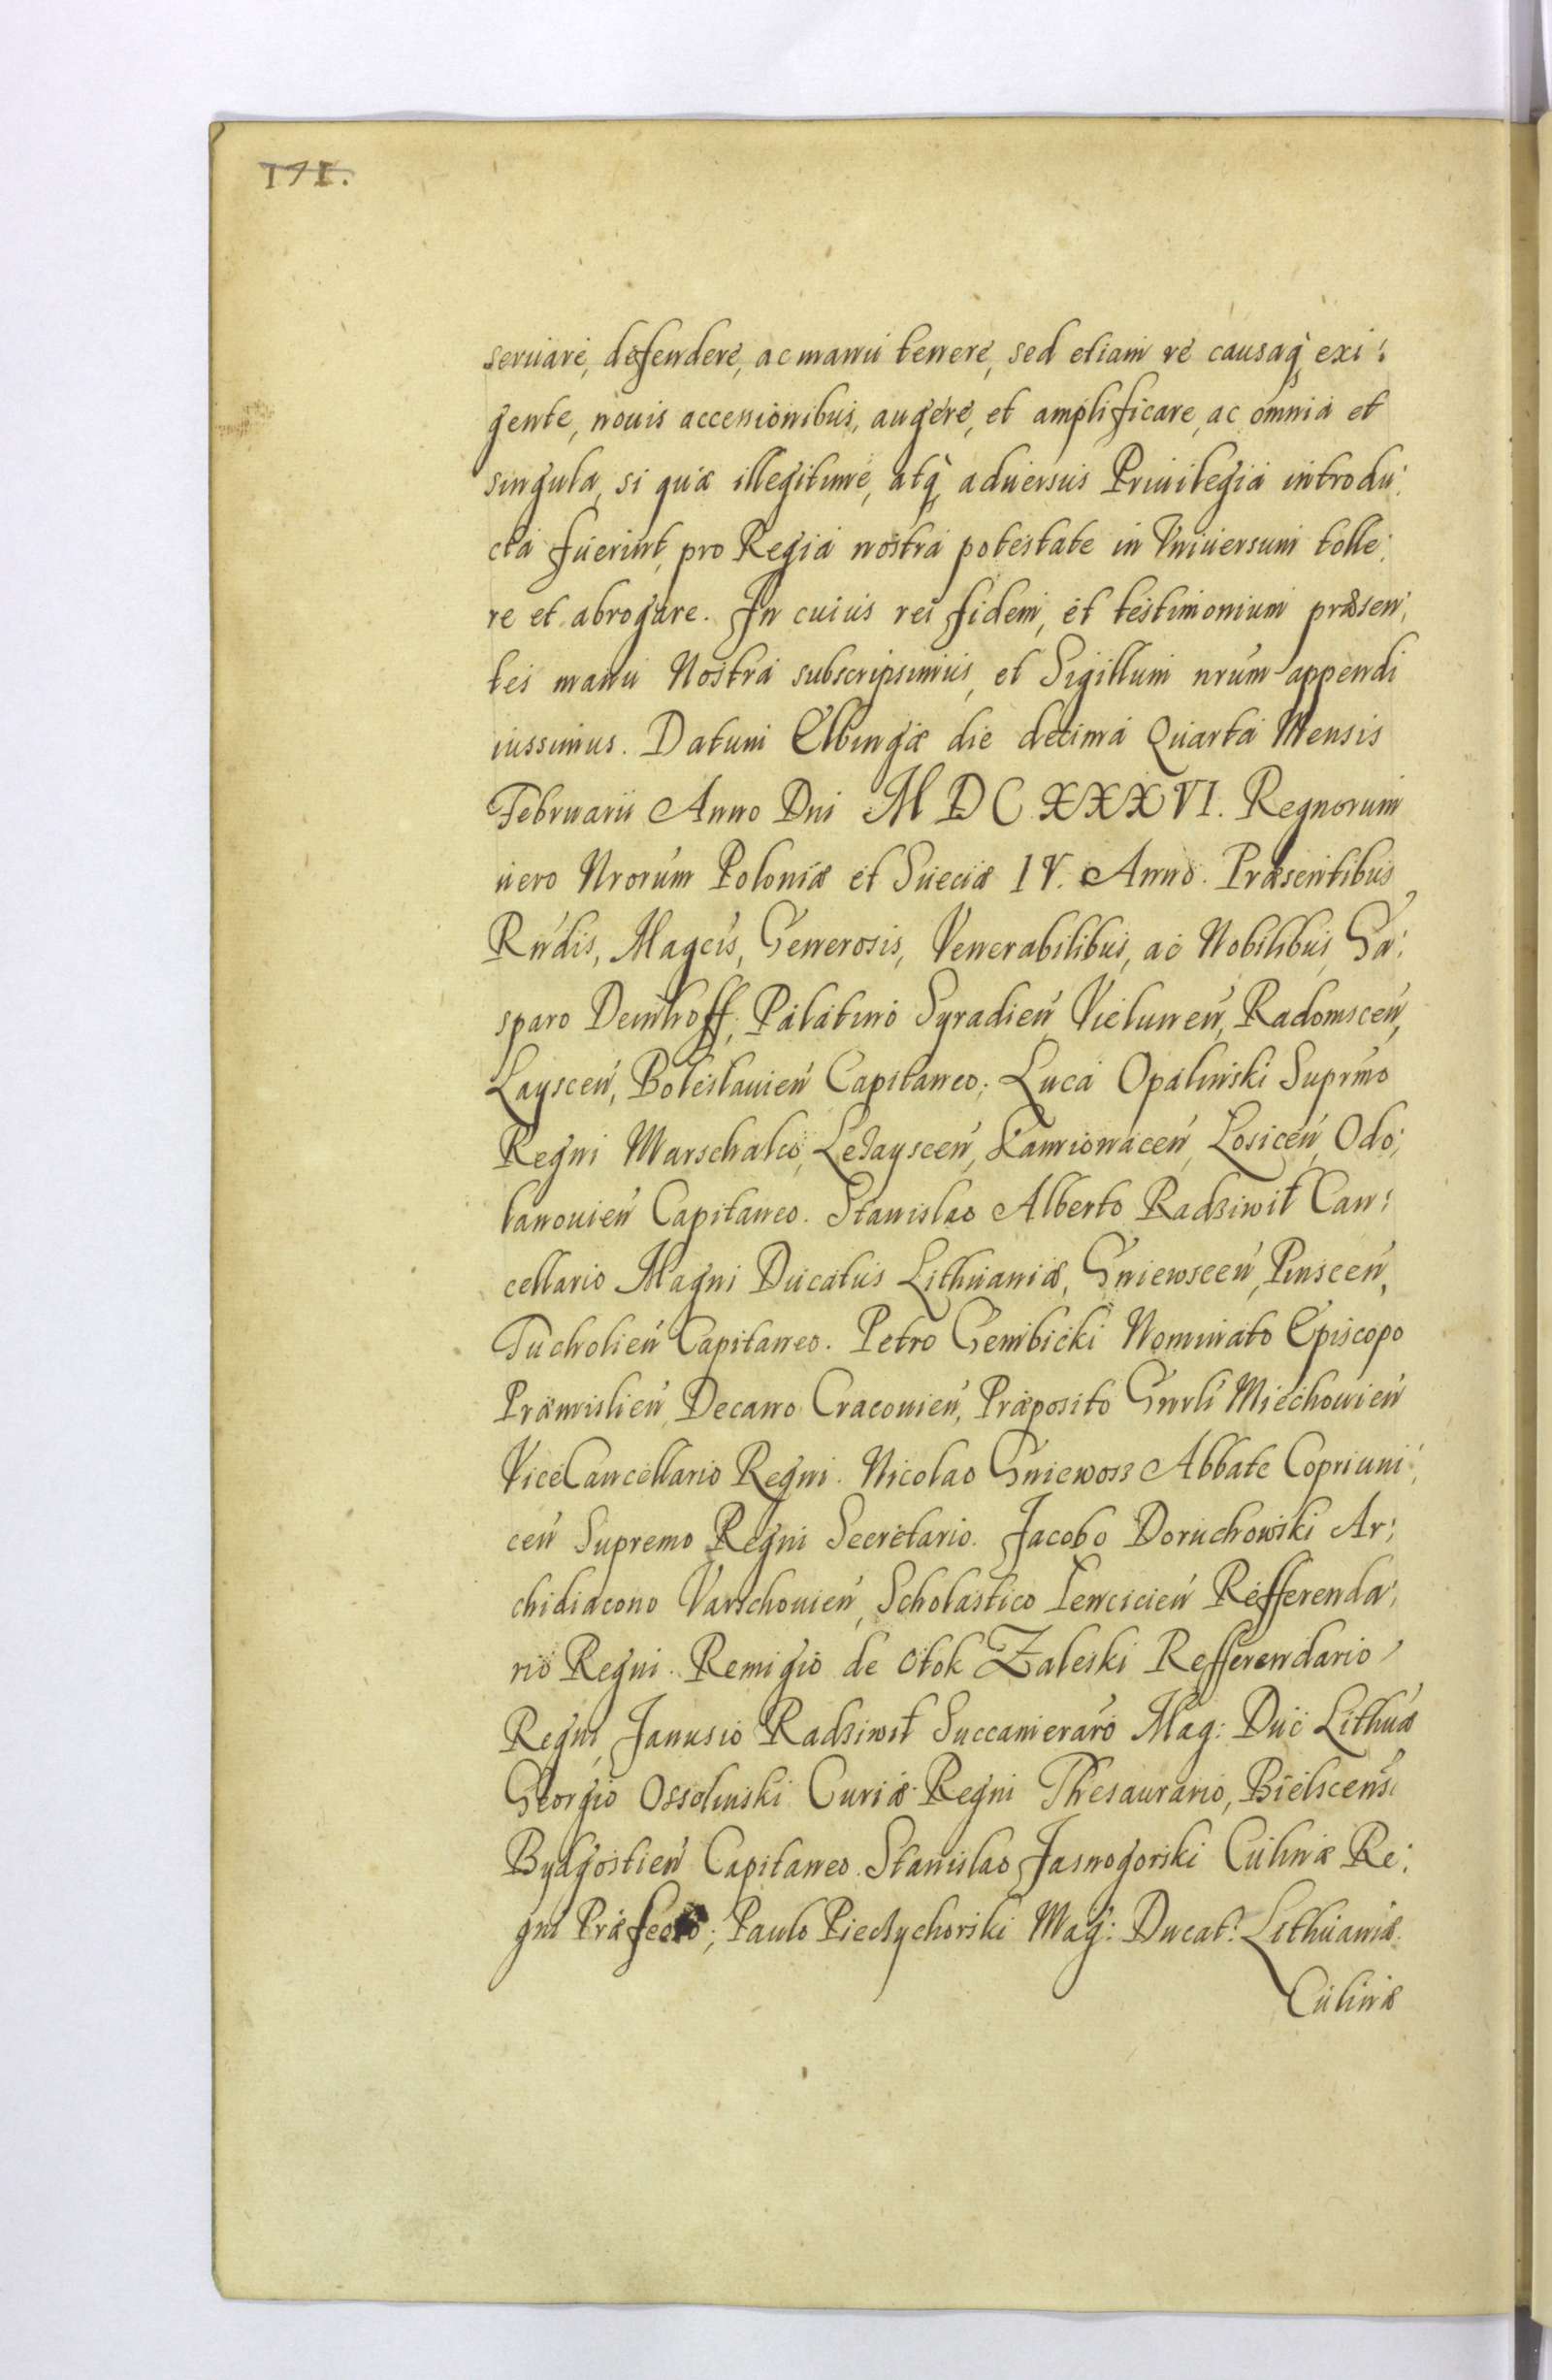 171.
seruare, defendere, ac manu tenere, sed etiam re causaq́ exi:
gente, nouis accensionibus, augere, et amplificare, ac omnia et
singula, si quæ illegitime, atq́ aduersus Priuilegia introdu:
cta fuerint, pro Regia nostra potestate in Vniuersum tolle:
re et abrogare. In cuius rei fidem, et testimonium præsen:
tes manu Nostra subscripsimus, et Sigillum nrum appendi
iussimus. Datum Elbingæ die decima Quarta Mensis
Februarii Anno Dni M D C XXX VI. Regnorum
uero Nrorum Poloniæ et Sueciæ IV. Anno. Præsentibus
Rndis, Magcis, Generosis, Venerabilibus, ac Nobilibus, Ga:
sparo Denhoff, Palatino Syradień, Vieluneń, Radomsceń,
Laysceń, Boleslauień Capitaneo; Luca Opalinski Suprmo
Regni Marschalco, Leżaysceń, Kamionaceń, Losiceń, Odo:
lanouień Capitaneo. Stanislao Alberto Radziwił Can:
cellario Magni Ducatus Lithuaniæ, Gniewsceń, Pinsceń,
Tucholień Capitaneo. Petro Gembicki Nominato Episcopo
Præmislień, Decano Cracouień, Præposito Gnrli Miechouień
ViceCancellario Regni. Nicolao Gniewosz Abbate Copriuni:
ceń Supremo Regni Secretario. Jacobo Doruchowski Ar:
chidiacono Varschouień, Scholastico Lencicień Refferenda:
rio Regni. Remigio de Otok Zaleski Refferendario
Regni, Janusio Radziwił Succameraro Mag: Duc Lithuæ
Georgio Ossolinski Curiæ Regni Thesaurario, Bielscensi
Bydgostień Capitaneo. Stanislao Jasnogorski Culinæ Re:
gni Præfecto; Paulo Pieczychorski Mag: Ducat: Lithuaniæ
Culinæ